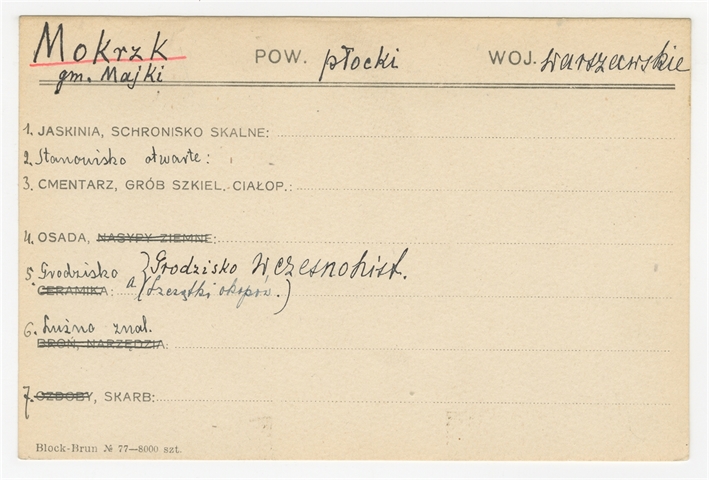 Mokrzk POW. płocki WOJ. warszawskie
gm. Majki
1. JASKINIA, SCHRONISKO SKALNE:
2. Stanowisko otwarte:
3. CMENTARZ, GRÓB SZKIEL. CIAŁOP.:
4. OSADA, NASYPY ZIEMNE:
5. Grodzisko } Grodzisko wczesnohist.
CERAMIKA: a (Szczątki okopów.)
6. Luźne znal.
BROŃ, NARZĘDZIA:
7. OZDOBY, SKARB:
Block-Brun № 77—8000 szt.